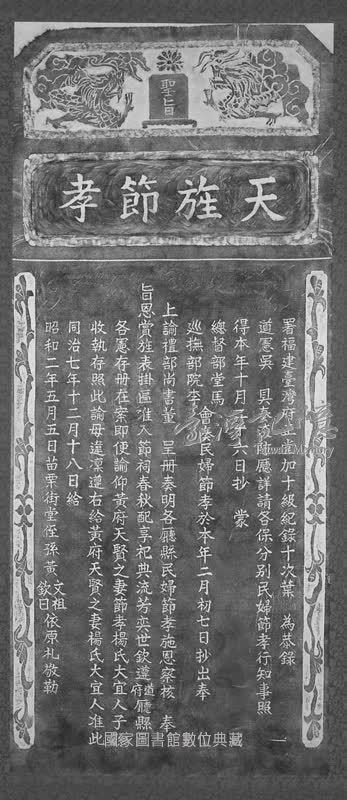 聖旨
天旌節孝
署福建臺灣府正堂加十級紀錄十次葉 為恭錄
道憲吳 具奏 廳詳請各保分別民婦節孝行知事照
得本年十月二十六日抄 蒙
總督部堂馬
巡撫部院李 會 民婦節孝於本年二月初七日抄出奉
上諭禮部尚書董 呈冊奏明各廳縣民婦節孝施恩察核 奉
旨恩賞旌表掛匾准入節祠春秋配享祀典流芳奕世欽遵道府廳縣
各憲存冊在案即便諭仰黃府天賢之妻節孝楊氏大宜人子
收執存照此諭毋違凜遵右給黃府天賢之妻楊氏大宜人准此
同治七年十二月十八日給
昭和二年五月五日苗栗街堂侄孫黃文祖欽日依原札敬勒
一
國家圖書館數位典藏